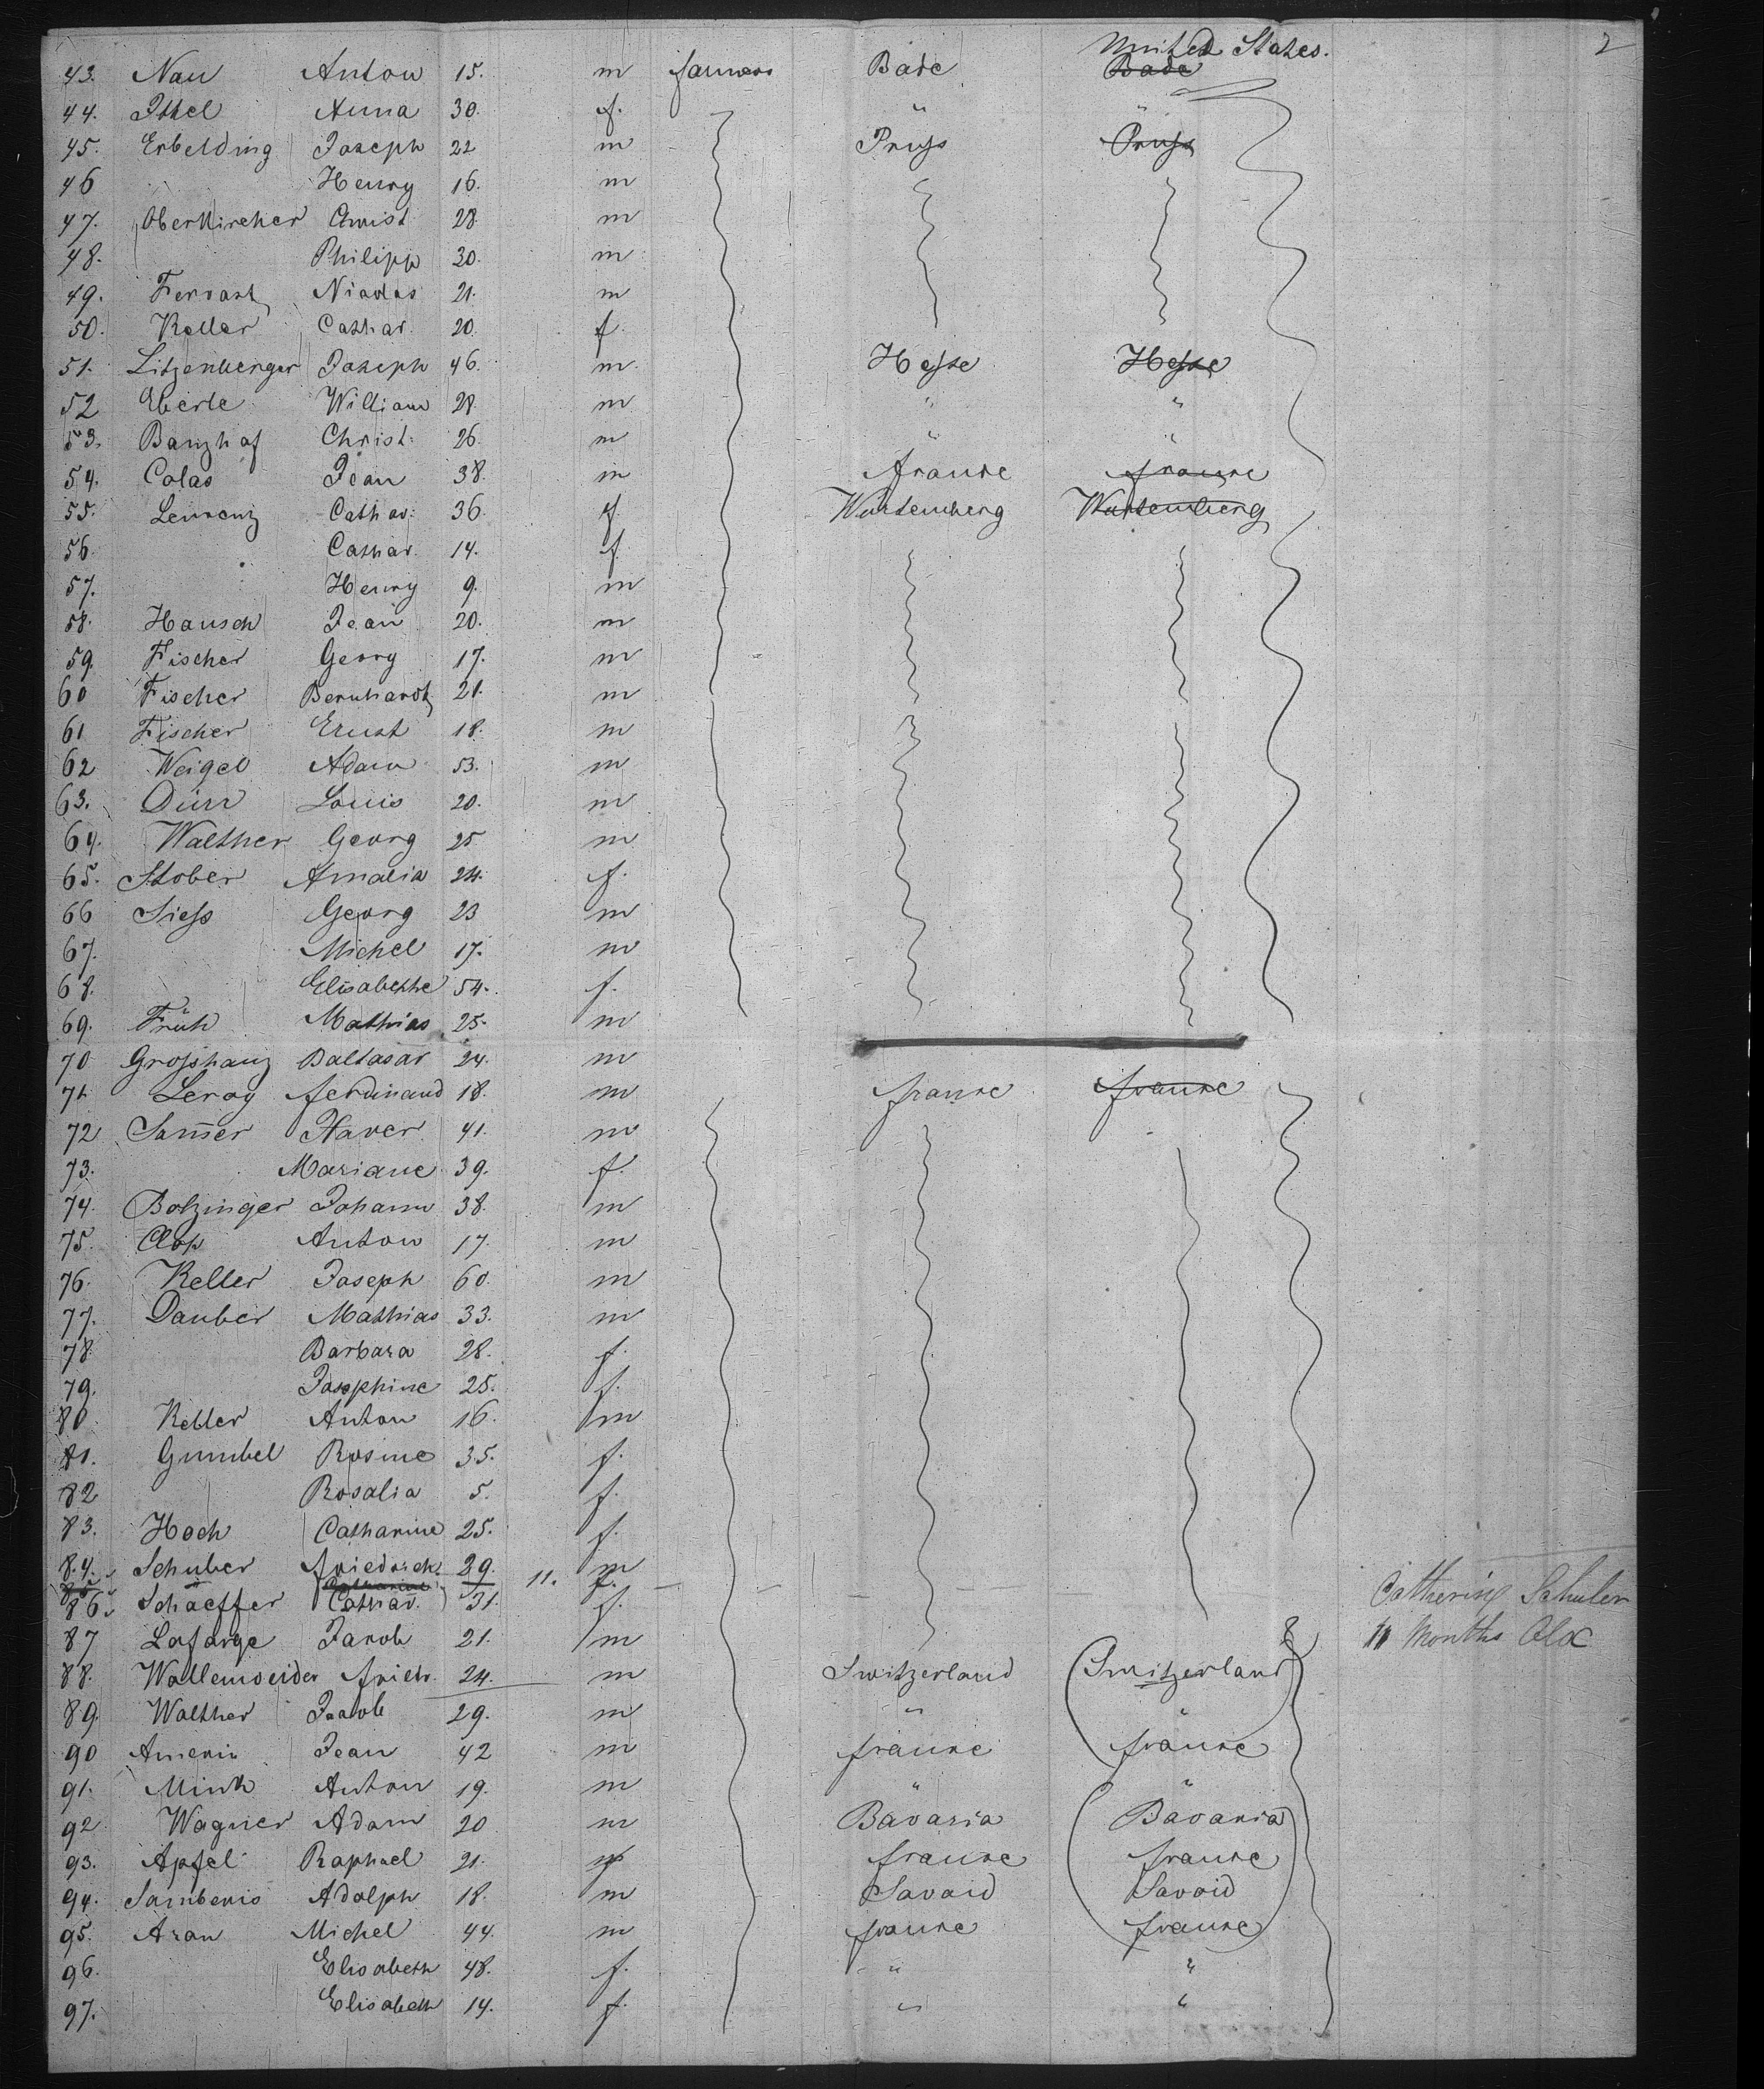 United States. 2
43. Nau Anton 15. m farmers Bade Bade
44. Ittel Anna 30. f. " "
45. Erbelding Joseph 22 m Pruss Pruss
46 Henry 16. m
47. Oberkircher Christ 28. m
48. Philipp 30. m
49. 21. m
50. Keller Cathar. 20. f.
51. Litzenberger Joseph 46. m. Hesse Hesse
52 Eberle William 28. m " "
53. Banzhaf Christ. 26. m " "
54. Colas Jean 38. m france france
55. Cathar. 36. f. Wurtemberg Wurtemberg
56. Cathar. 14. f.
57. Henry 9. m
58. Hausch Jean 20. m
59. Fischer Georg 17. m
60 Fischer Bernhardt 21. m
61 Fischer Ernst 18. m
62 Weigel Adam 53. m
63. Dürr Louis 20. m
64. Walther Georg 25 m
65. Stober Amalia 24. f.
66 Siess Georg 23 m
67. Michel 17. m
68. Elisabethe 54. f.
69. Früh Mathias 25. m
70 Grosshanz Baltasar 24. m
71. Leroy ferdinand 18. m france france
72 Sam̄er Xaver 41. m
73. Mariane 39. f.
74. Bolzinger Johann 38. m
75. Clop Anton 17. m
76. Keller Joseph 60. m
77. Dauber Mathias 33. m
78. Barbara 28. f.
79. Josephine 25. f.
80 Keller Anton 16. m
81. Gumbel Rosine 35. f.
82 Rosalia 5. f.
83. Hoch Catharine 25. f.
84. Schuber friedrich 29. m
85 Catharine 11. f. Catherine Schuler
86. Schaeffer Cathar. 31. f.
87 Lafarge Jacob 21. m 11 Months Old
88. Wallenweider friedr. 24. m Switzerland Switzerland
89. Walther Jacob 29. m " "
90 Jean 42 m france france
91. Mink Anton 19. m " "
92. Wagner Adam 20 m Bavaria Bavaria
93. Apfel Raphael 21. m france france
94. Adolph 18. m Savoid Savoid
95. Aran Michel 44. m france france
96. Elisabeth 48. f. " "
97. Elisabeth 14. f. " "